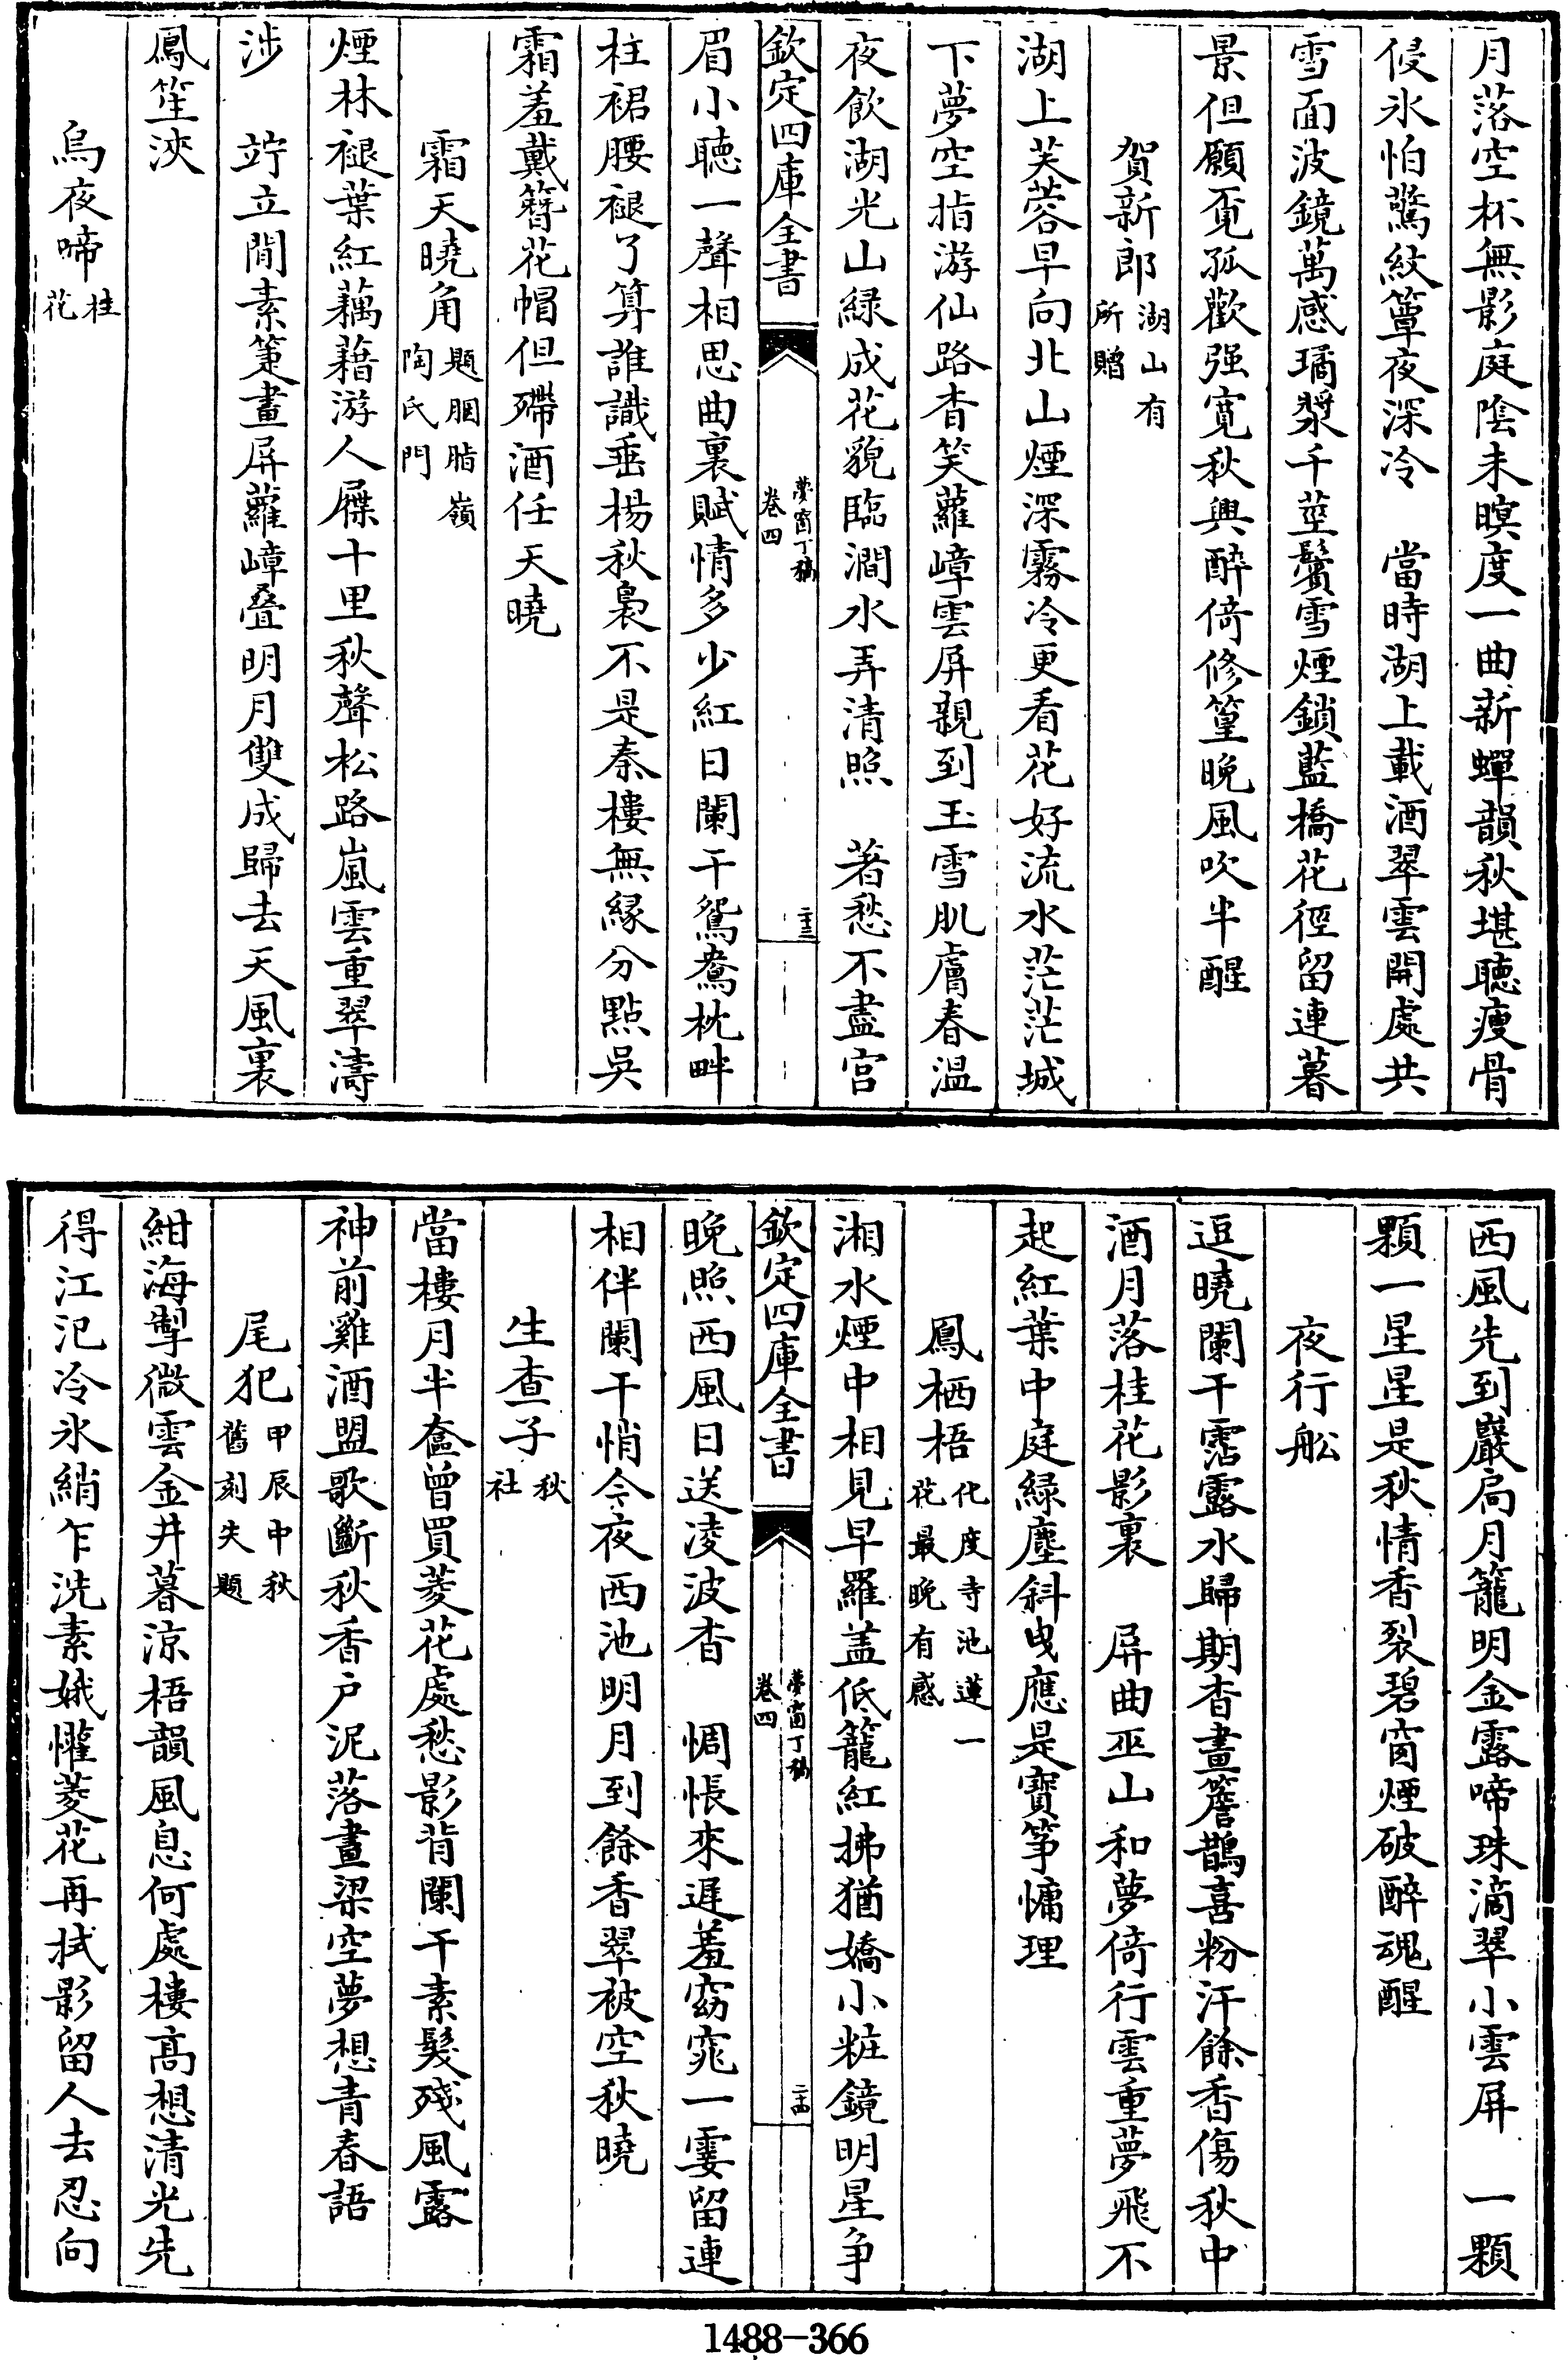 月落空杯無影庭陰未暝度一曲新蟬韻秋堪聽瘦骨
侵氷怕驚紋簟夜深冷　當時湖上載酒翠雲開處共
雪面波鏡萬感瓊漿千莖鬢雪煙鎖藍橋花徑留連暮
景但願覔孤歡强寛秋興醉倚修篁晚風吹半醒
賀新郎湖山有所贈
湖上芙蓉早向北山煙深霧冷更看花好流水茫茫城
下夢空指游仙路杳笑蘿嶂雲屏親到玉雪肌膚春温
夜飲湖光山緑成花貌臨澗水弄清照　著愁不盡宫
欽定四庫全書
夢窗丁稿
卷四
二十三
眉小聴一聲相思曲裏賦情多少紅日闌干鴛鴦枕畔
柱裙腰褪了算誰識垂楊秋裊不是秦樓無縁分點吳
霜羞戴簪花帽但殢酒任天曉
霜天曉角題胭脂嶺陶氏門
煙林褪葉紅藕藉游人屧十里秋聲松路嵐雲重翠濤
涉　竚立閒素箑畫屏蘿嶂疊明月雙成歸去天風裏
鳳笙浹
烏夜啼桂花
西風先到巖扃月籠明金露啼珠滴翠小雲屏　一顆
顆一星星是秋情香裂碧窗煙破醉魂醒
夜行船
逗曉闌干霑露水歸期杳畫簷鵲喜粉汗餘香傷秋中
酒月落桂花影裏　屏曲巫山和夢倚行雲重夢飛不
起紅葉中庭緑塵斜曳應是寳筝慵理
鳳栖梧化度寺池蓮一花最晚有感
湘水煙中相見早羅盖低籠紅拂猶嬌小粧鏡明星争
欽定四庫全書
夢窗丁稿
卷四
二十四
晚照西風日送凌波杳　惆悵來遲羞窈窕一霎留連
相伴闌干悄今夜西池明月到餘香翠被空秋曉
生查子秋社
當樓月半奩曾買菱花處愁影背闌干素髮殘風露
神前雞酒盟歌斷秋香戸泥落畫梁空夢想青春語
尾犯甲辰中秋舊刻失題
紺海掣微雲金井暮涼梧韻風息何處樓髙想清光先
得江汜冷氷綃乍洗素娥懽菱花再拭影留人去忍向
1488-366